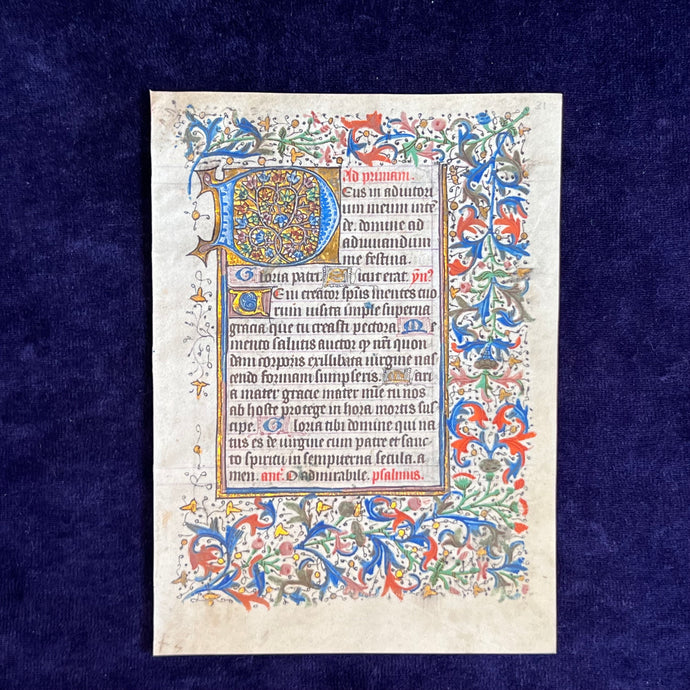 21
Ad primam.
Deus in adiutori
um meum inte̅
de. domine ad
adiuuandum
me festina.
Gloria patri. Sicut erat. yn̅s
Ueni creator sp̅us mentes tuo
rum uisita imple superna
gracia que tu creasti pectora Me
mento salutis auctor q̅ nr̅i quon
dam corporis ex illibata uirgine nas
cendo formam sumpseris. Mari
a mater gracie mater mi̅e tu nos
ab hoste protege in hora mortis sus
cipe. Gloria tibi domine qui na
tus es de uirgine cum patre et sanc
to spiritu in sempiterna secula. a
men. ant̅. O admirabile. psalmus.